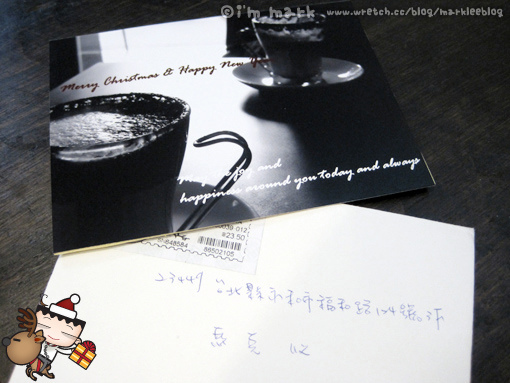 ©i'm mark www.wretch.cc/blog/markleeblog
Merry Christmas & Happy New Year
joy and
happiness around you today and always
$23.50
848584 88502105
23449 台北縣永和市福和路124號3F
馬克 收